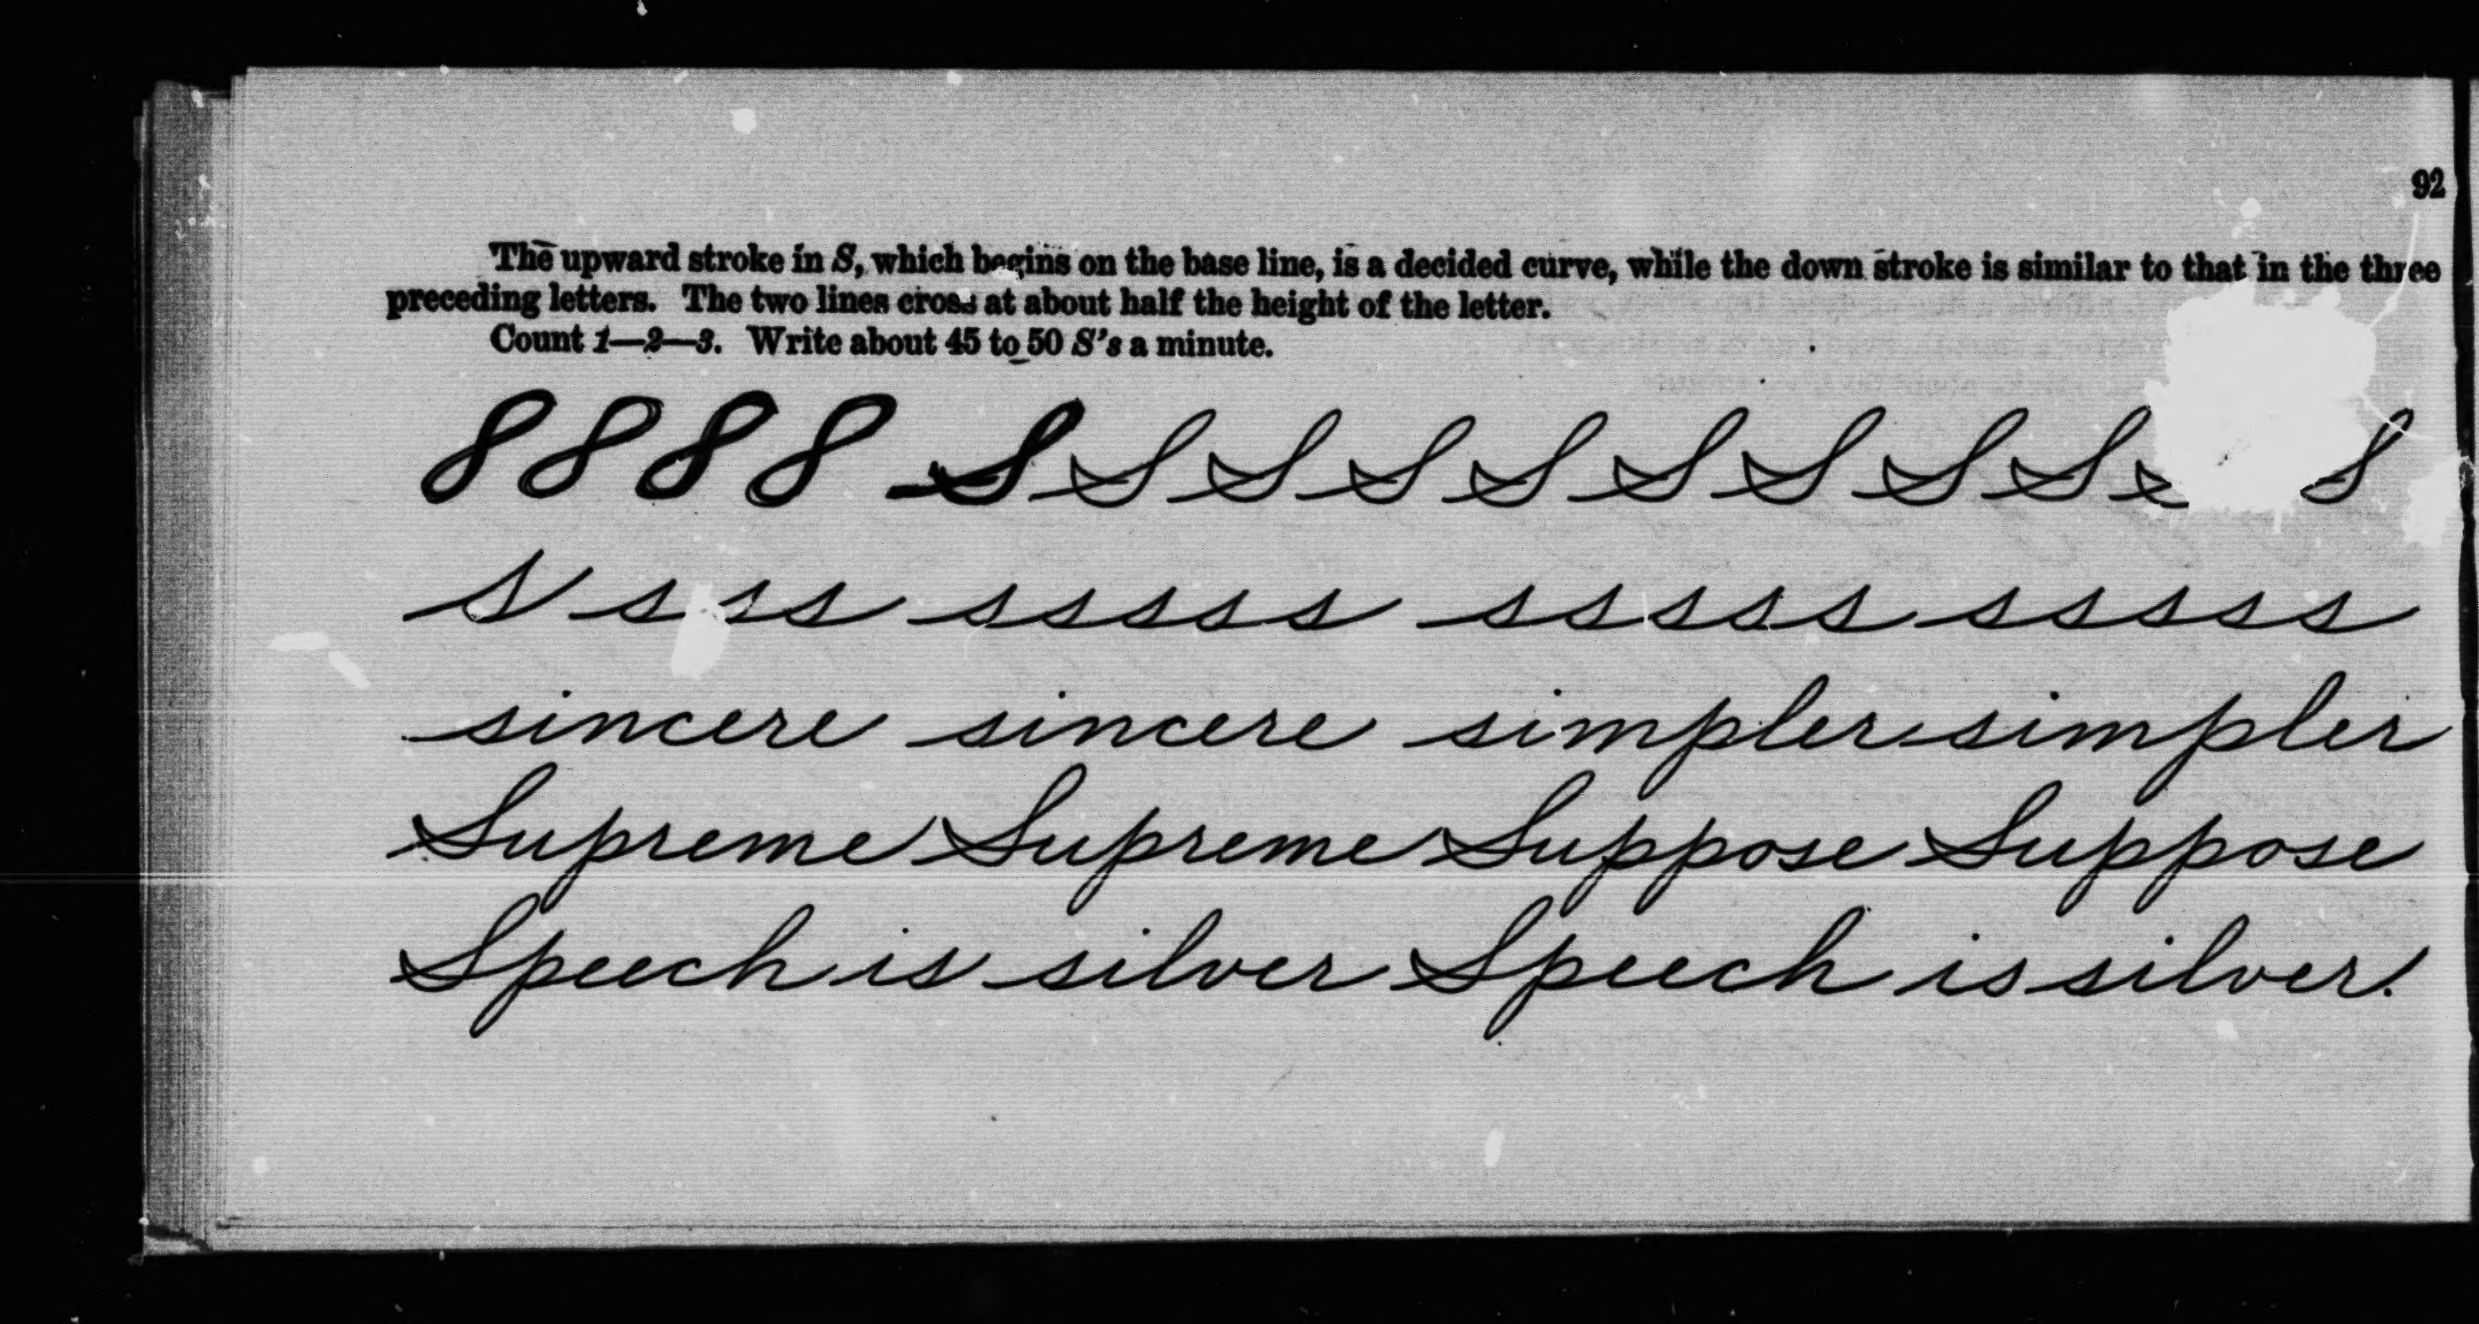 92
The upward stroke in S, which begins on the base line, is a decided curve, while the down stroke is similar to that in the three
preceding letters. The two lines cross at about half the height of the letter.
Count 1—2—3. Write about 45 to 50 S's a minute.
8 8 8 8 S S S S S S S S S S
s s s s sssss sssss sssss
sincere sincere simpler simpler
Supreme Supreme Suppose Suppose
Speech is silver Speech is silver.